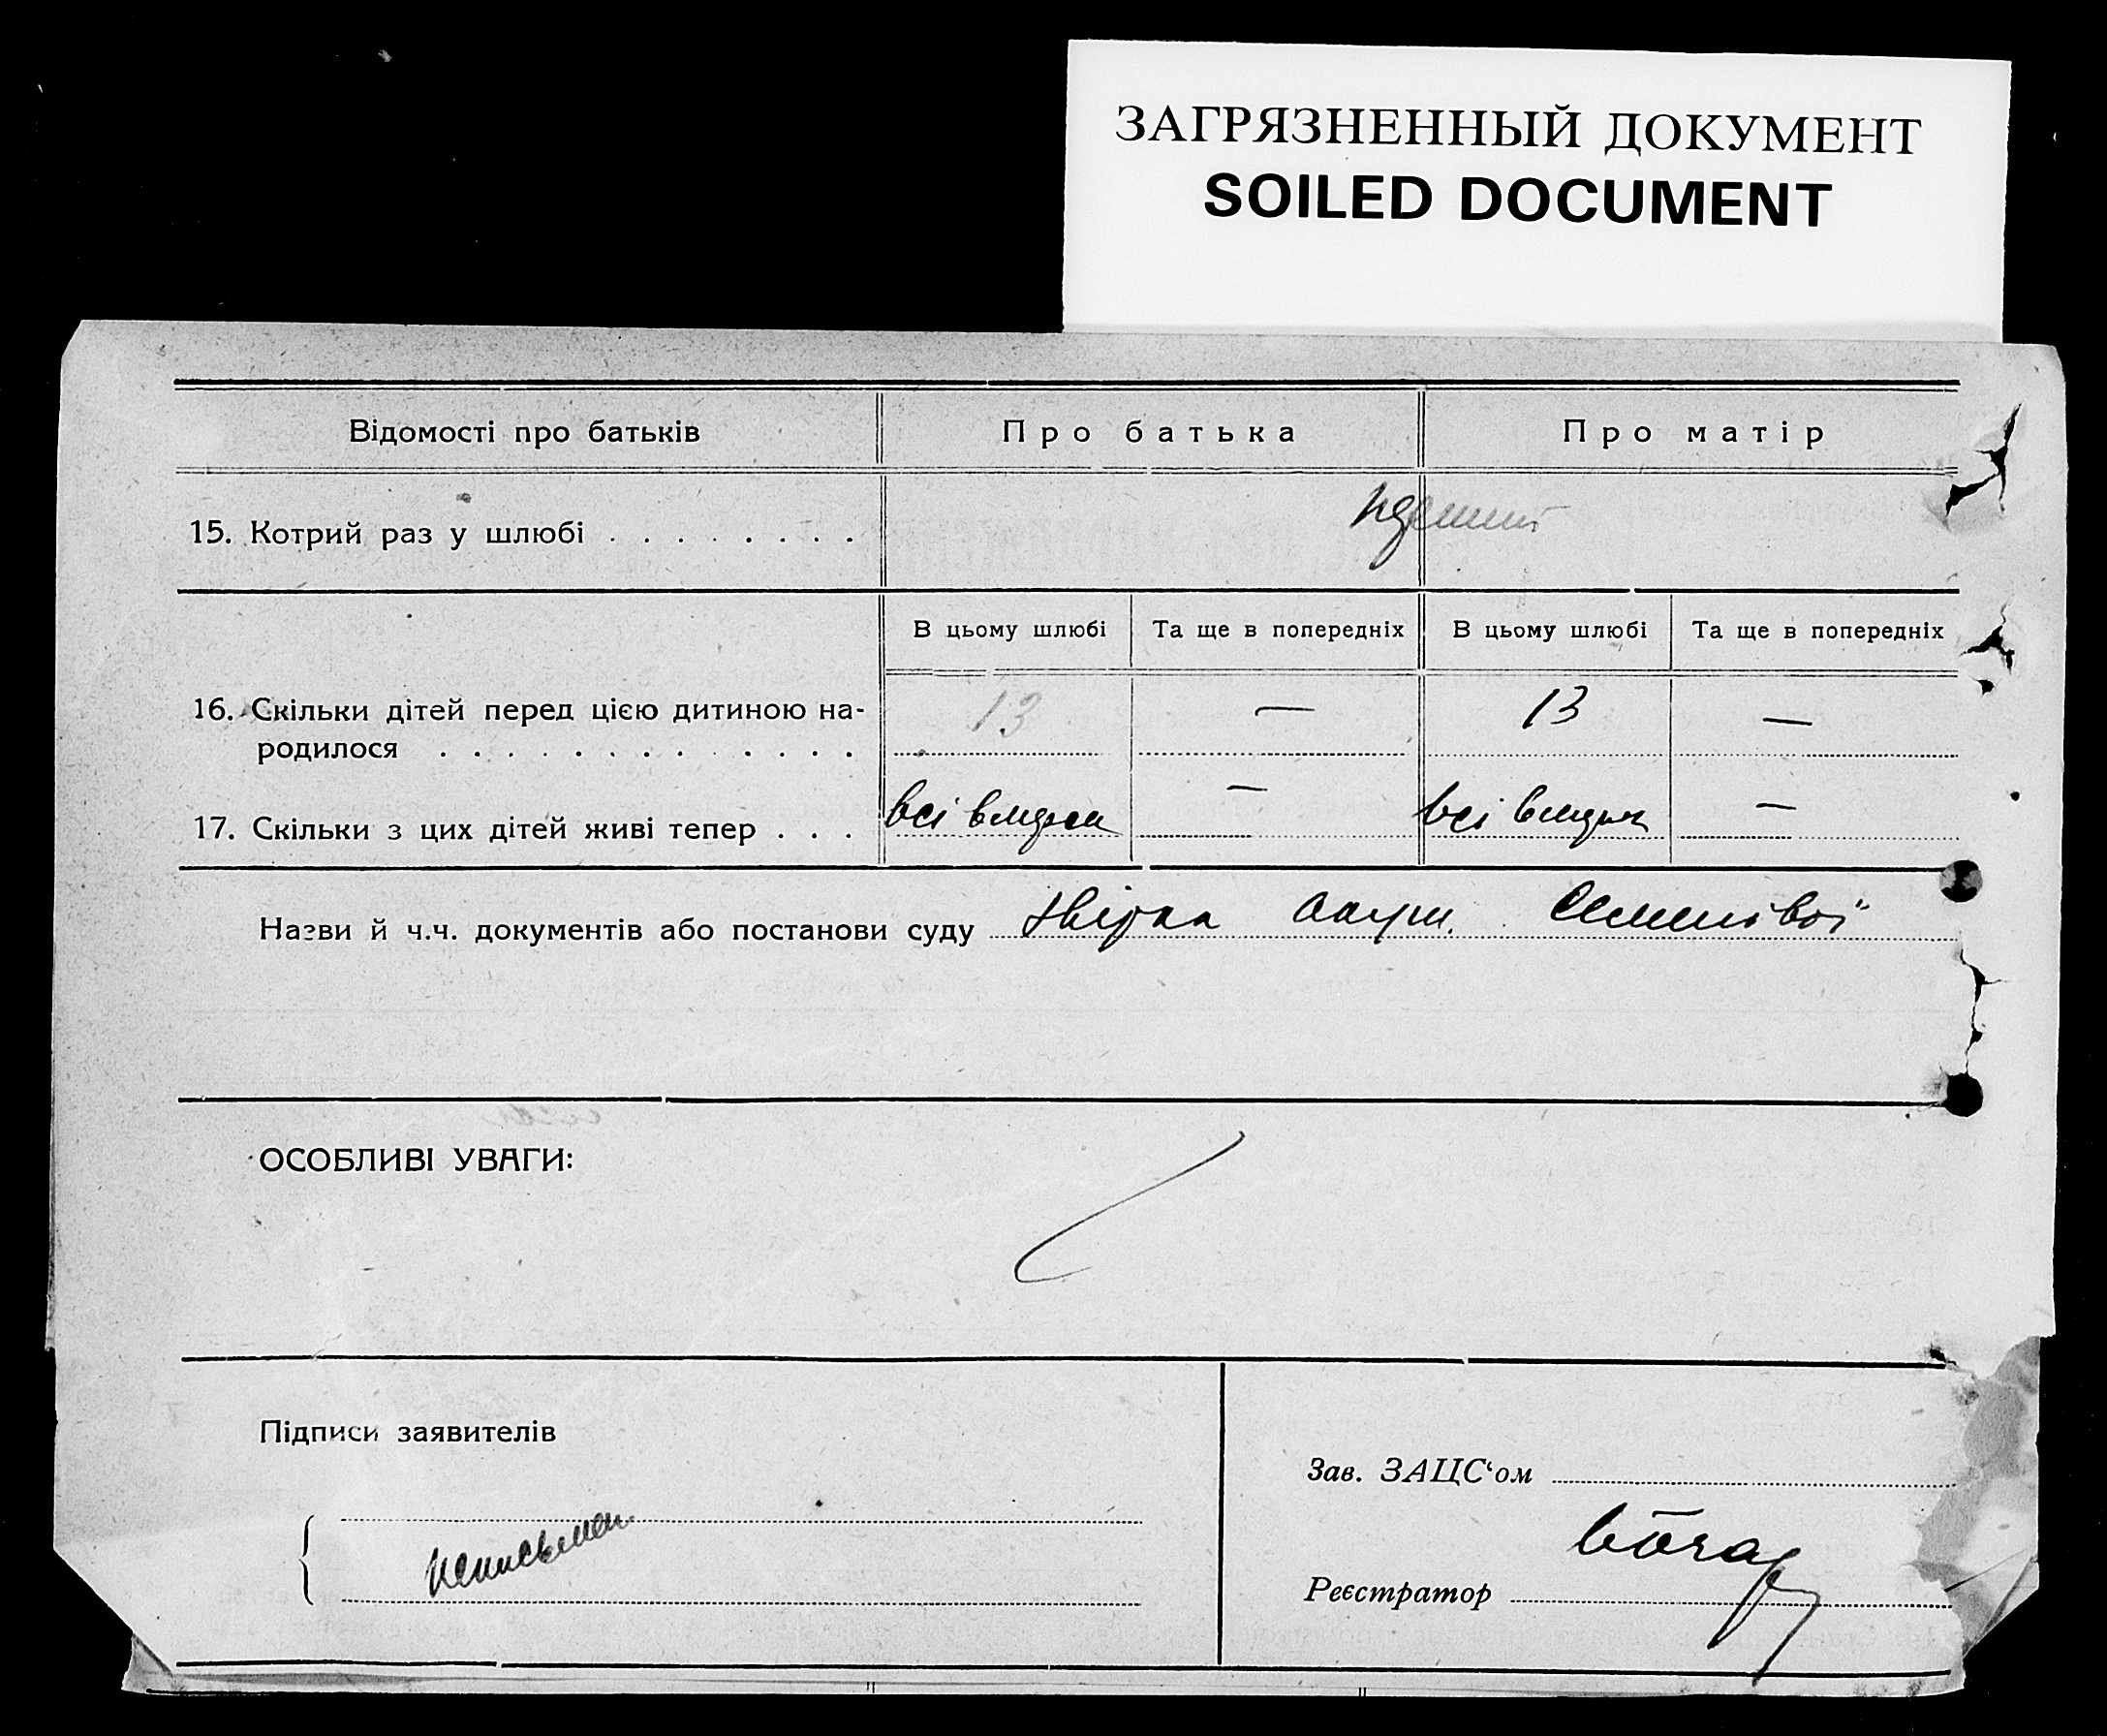 ЗАГРЯЗНЕННЫЙ ДОКУМЕНТ
SOILED DOCUMENT
Відомості про батьків
Про батька
Про матір
15. Котрий раз у шлюбі . . . . . . . .
В цьому шлюбі
Та ще в попередніх
В цьому шлюбі
Та ще в попередніх
16. Скільки дітей перед цією дитиною на-
родилося . . . . . . . . . . . . .
13
—
13
—
17. Скільки з цих дітей живі тепер . . .
всі вмерли
—
всі вмерли
—
Назви й ч.ч. документів або постанови суду
ОСОБЛИВІ УВАГИ:
Підписи заявителів
неписьмен.
Зав. ЗАЦС‘ом
Реєстратор